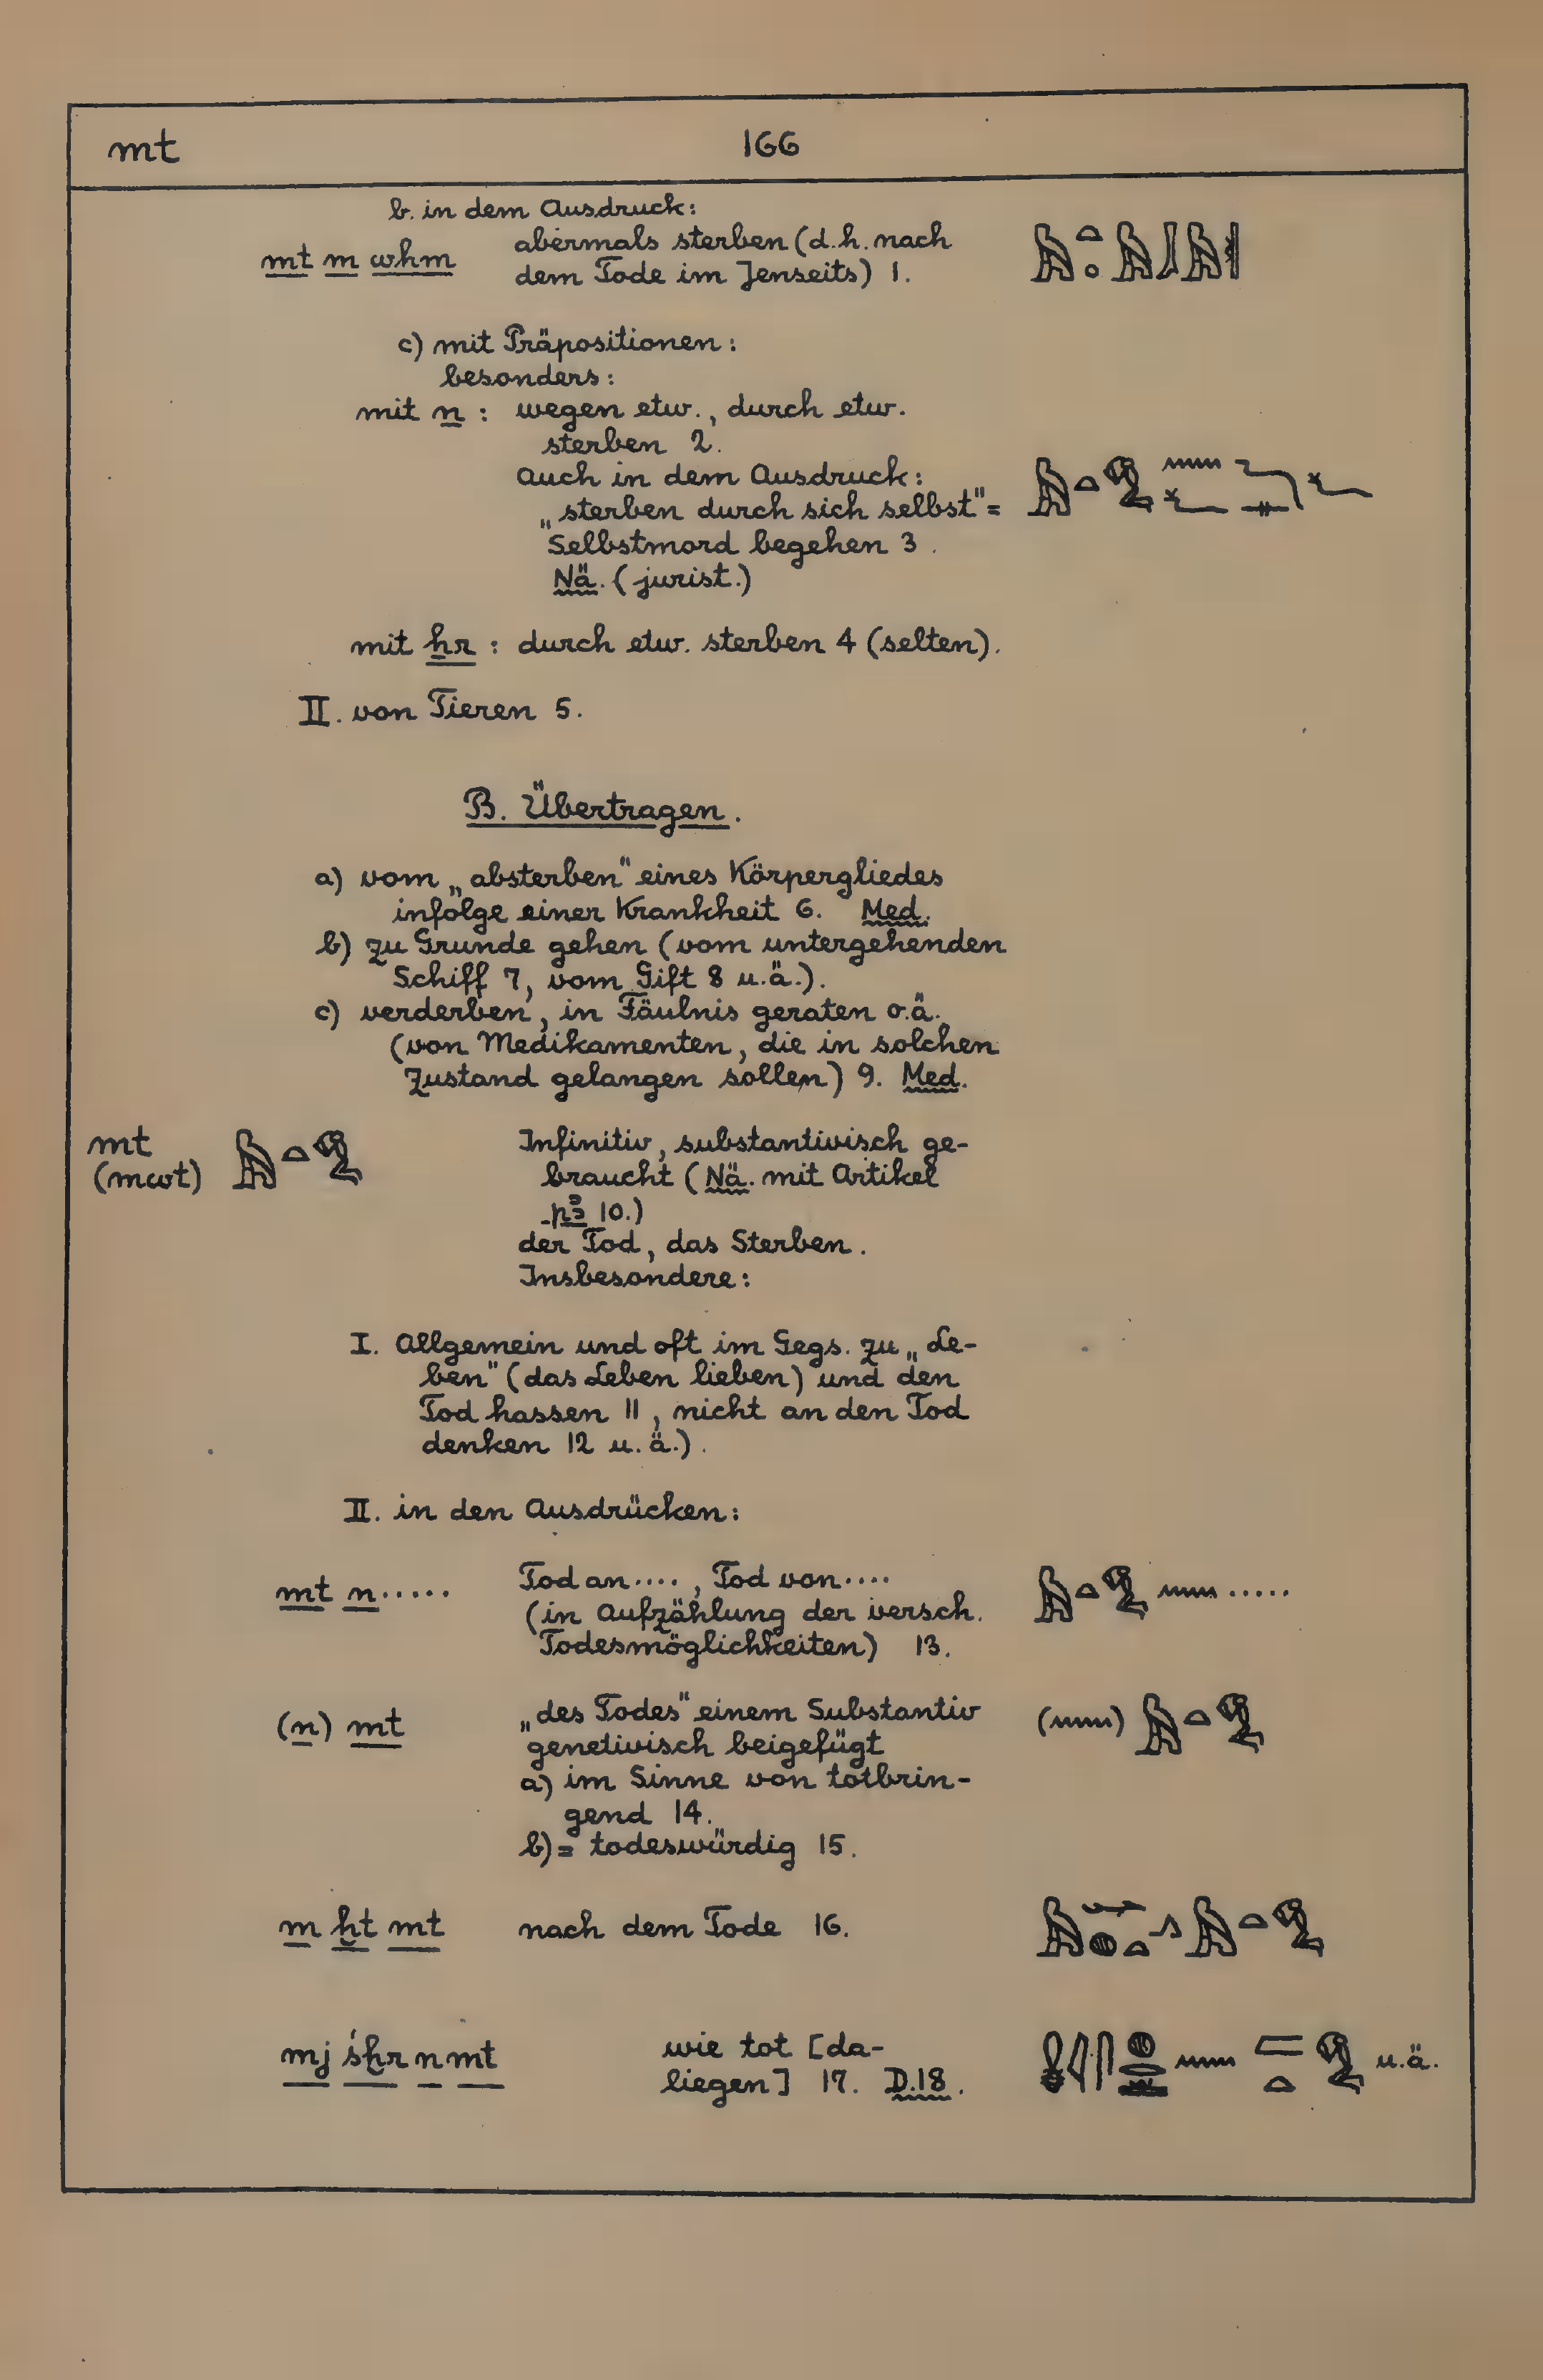 mt 166
b. in dem Ausdruck:
mt m whm abermals sterben (d.h. nach
dem Tode im Jenseits) 1.
c) mit Präpositionen:
besonders:
mit n : wegen etw., durch etw.
sterben 2.
Auch in dem Ausdruck:
„sterben durch sich selbst" =
Selbstmord begehen 3.
Nä. (jurist.)
mit ḥr : durch etw. sterben 4 (selten).
II. von Tieren 5.
B. Übertragen.
a) vom „absterben" eines Körpergliedes
infolge einer Krankheit 6. Med.
b) zu Grunde gehen (vom untergehenden
Schiff 7, vom Gift 8 u.ä.).
c) verderben, in Fäulnis geraten o.ä.
(von Medikamenten, die in solchen
Zustand gelangen sollen) 9. Med.
mt Infinitiv, substantivisch ge-
(mwt) braucht (Nä. mit Artikel
pꜣ 10.)
der Tod, das Sterben.
Insbesondere:
I. Allgemein und oft im Gegs. zu „Le-
ben" (das Leben lieben) und den
Tod hassen 11, nicht an den Tod
denken 12 u.ä.).
II. in den Ausdrücken:
mt n..... Tod an...., Tod von....
(in Aufzählung der versch.
Todesmöglichkeiten) 13.
(n) mt „des Todes" einem Substantiv
genetivisch beigefügt
a) im Sinne von totbrin-
gend 14.
b) = todeswürdig 15.
m ḫt mt nach dem Tode 16.
mj śḫr n mt wie tot [da- u.ä.
liegen] 17. D.18.